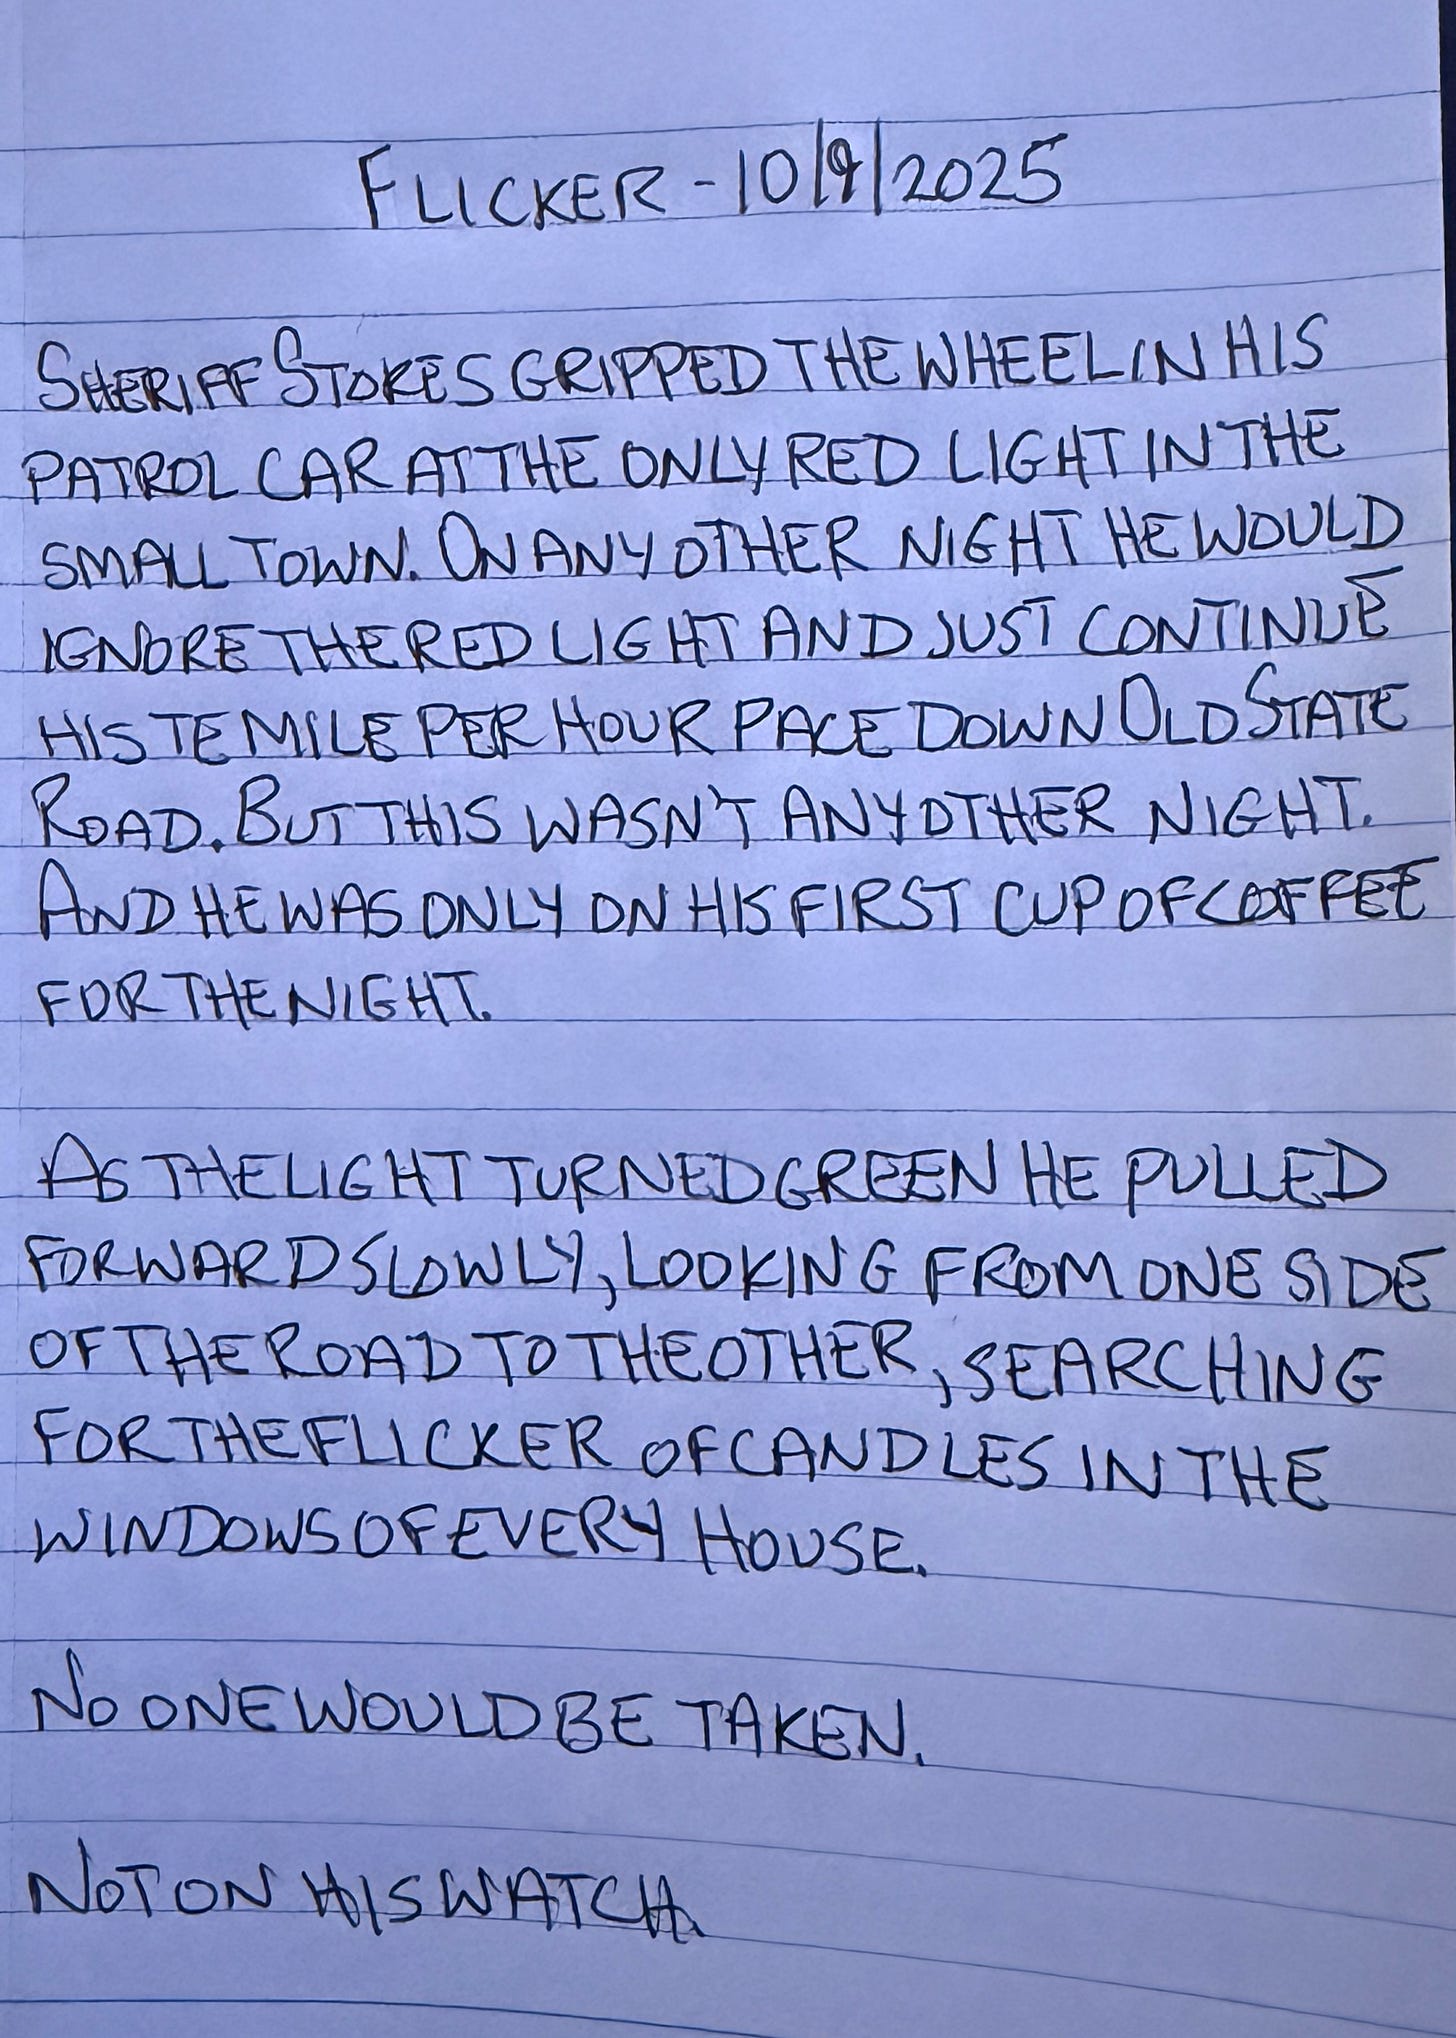 FLICKER - 10/9/2025
SHERIFF STOKES GRIPPED THE WHEEL IN HIS
PATROL CAR AT THE ONLY RED LIGHT IN THE
SMALL TOWN. ON ANY OTHER NIGHT HE WOULD
IGNORE THE RED LIGHT AND JUST CONTINUE
HIS TE MILE PER HOUR PACE DOWN OLD STATE
ROAD. BUT THIS WASN'T ANY OTHER NIGHT.
AND HE WAS ONLY ON HIS FIRST CUP OF COFFEE
FOR THE NIGHT.
AS THE LIGHT TURNED GREEN HE PULLED
FORWARD SLOWLY, LOOKING FROM ONE SIDE
OF THE ROAD TO THE OTHER, SEARCHING
FOR THE FLICKER OF CANDLES IN THE
WINDOWS OF EVERY HOUSE.
NO ONE WOULD BE TAKEN.
NOT ON HIS WATCH.